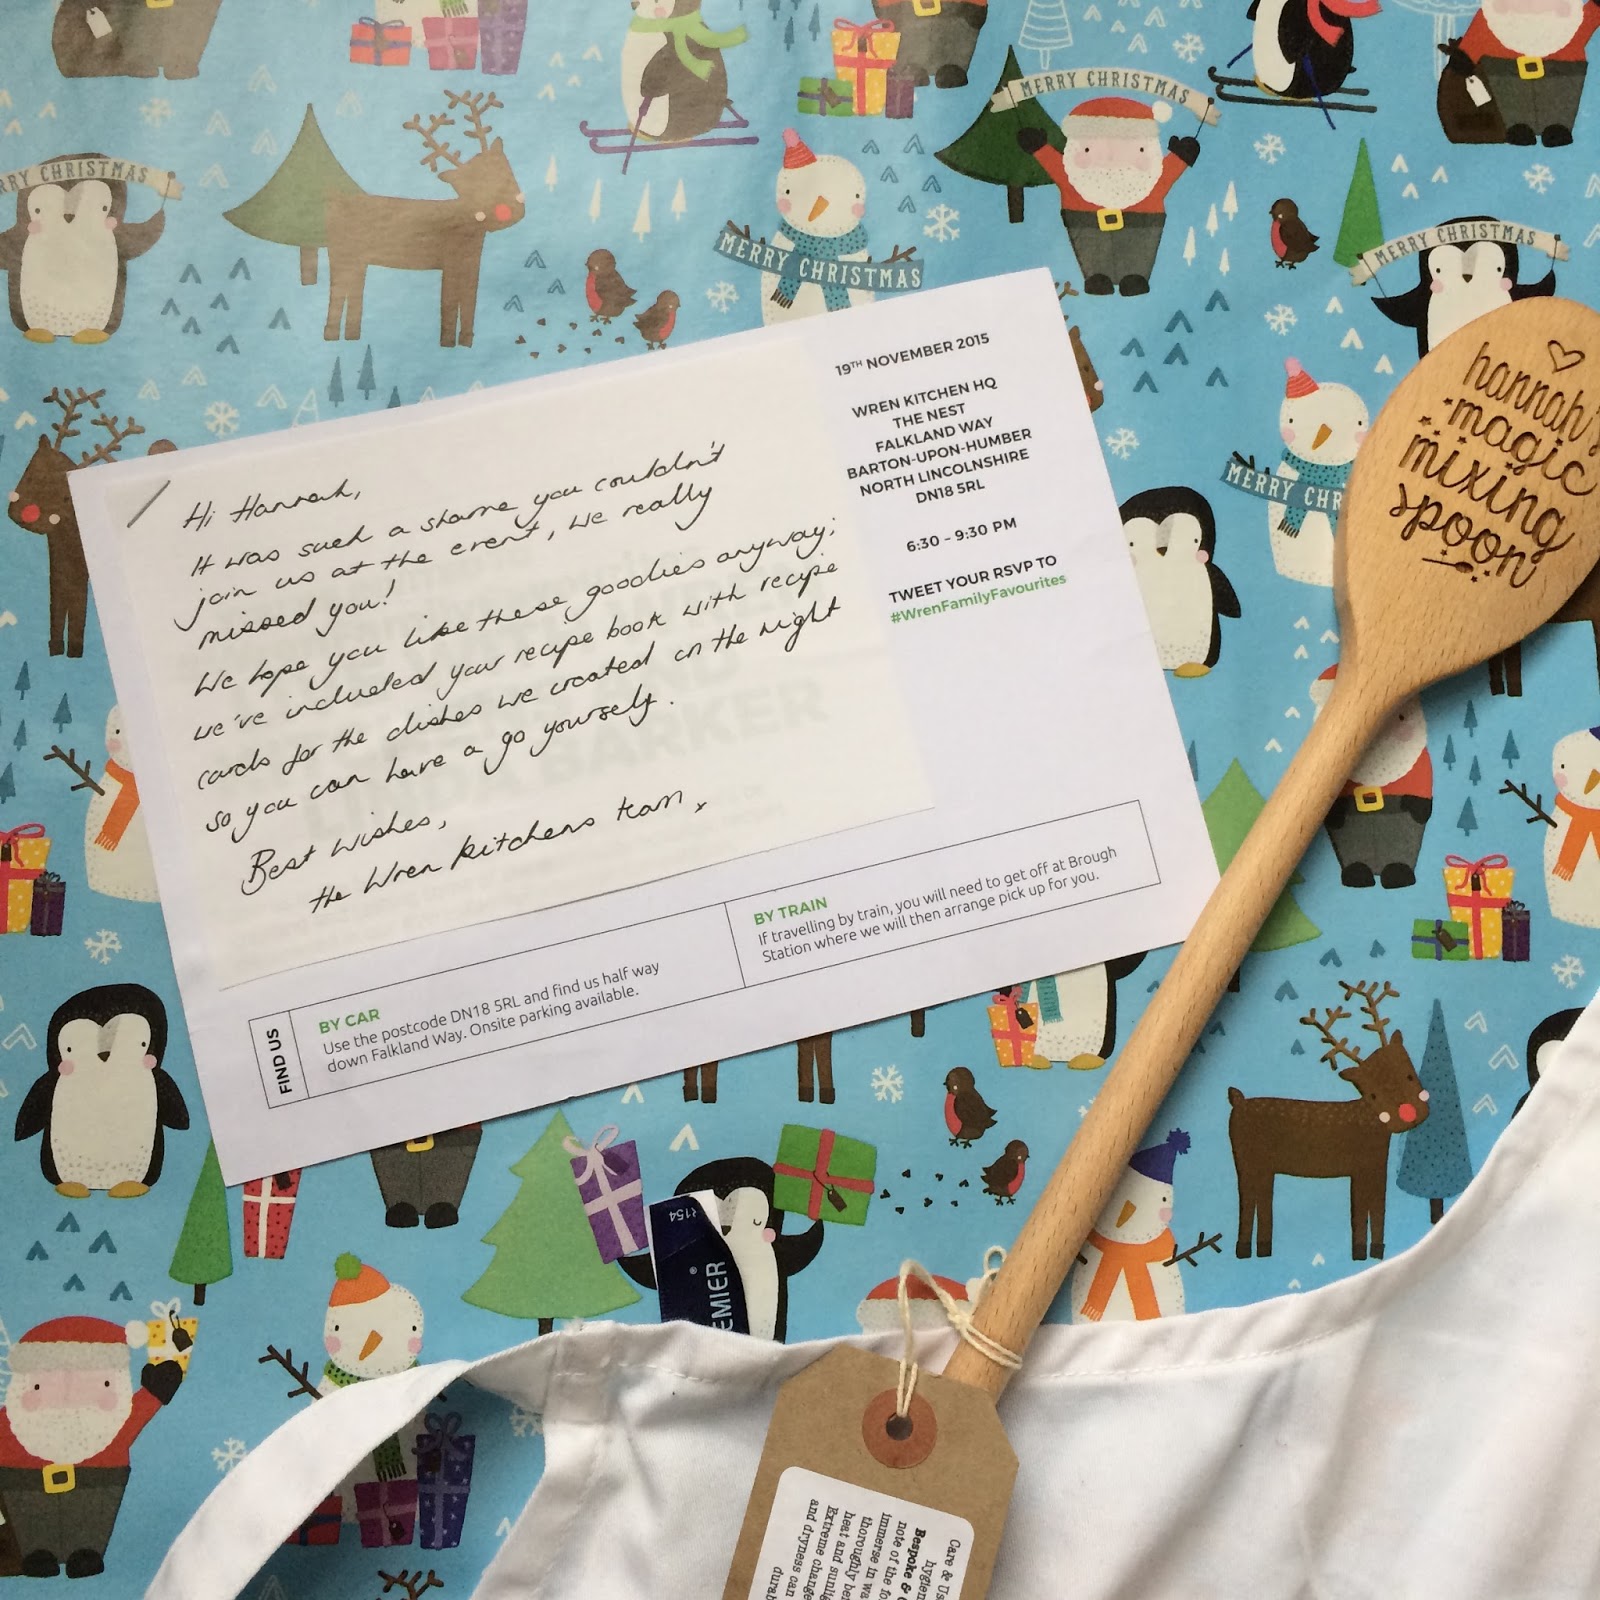 MERRY CHRISTMAS
RRY CHRISTMAS
MERRY CHRISTMAS
MERRY CHRISTMAS
MERRY CHR
Hi Hannah,
It was such a shame you couldn't
join us at the event, we really
missed you!
We hope you like these goodies anyway;
we've included your recipe book with recipe
cards for the dishes we created on the night
so you can have a go yourself.
Best wishes,
the Wren Kitchens team, x
19TH NOVEMBER 2015
WREN KITCHEN HQ
THE NEST
FALKLAND WAY
BARTON-UPON-HUMBER
NORTH LINCOLNSHIRE
DN18 5RL
6:30 – 9:30 PM
TWEET YOUR RSVP TO
#WrenFamilyFavourites
FIND US
BY CAR
Use the postcode DN18 5RL and find us half way
down Falkland Way. Onsite parking available.
BY TRAIN
If travelling by train, you will need to get off at Brough
Station where we will then arrange pick up for you.
hannah's
magic
mixing
spoon
BARKER
R154
EMIER
®
Care & Us
hygien
Bespoke &
note of the fo
immerse in wa
thoroughly be
heat and sunlig
Extreme change
and dryness can
durab